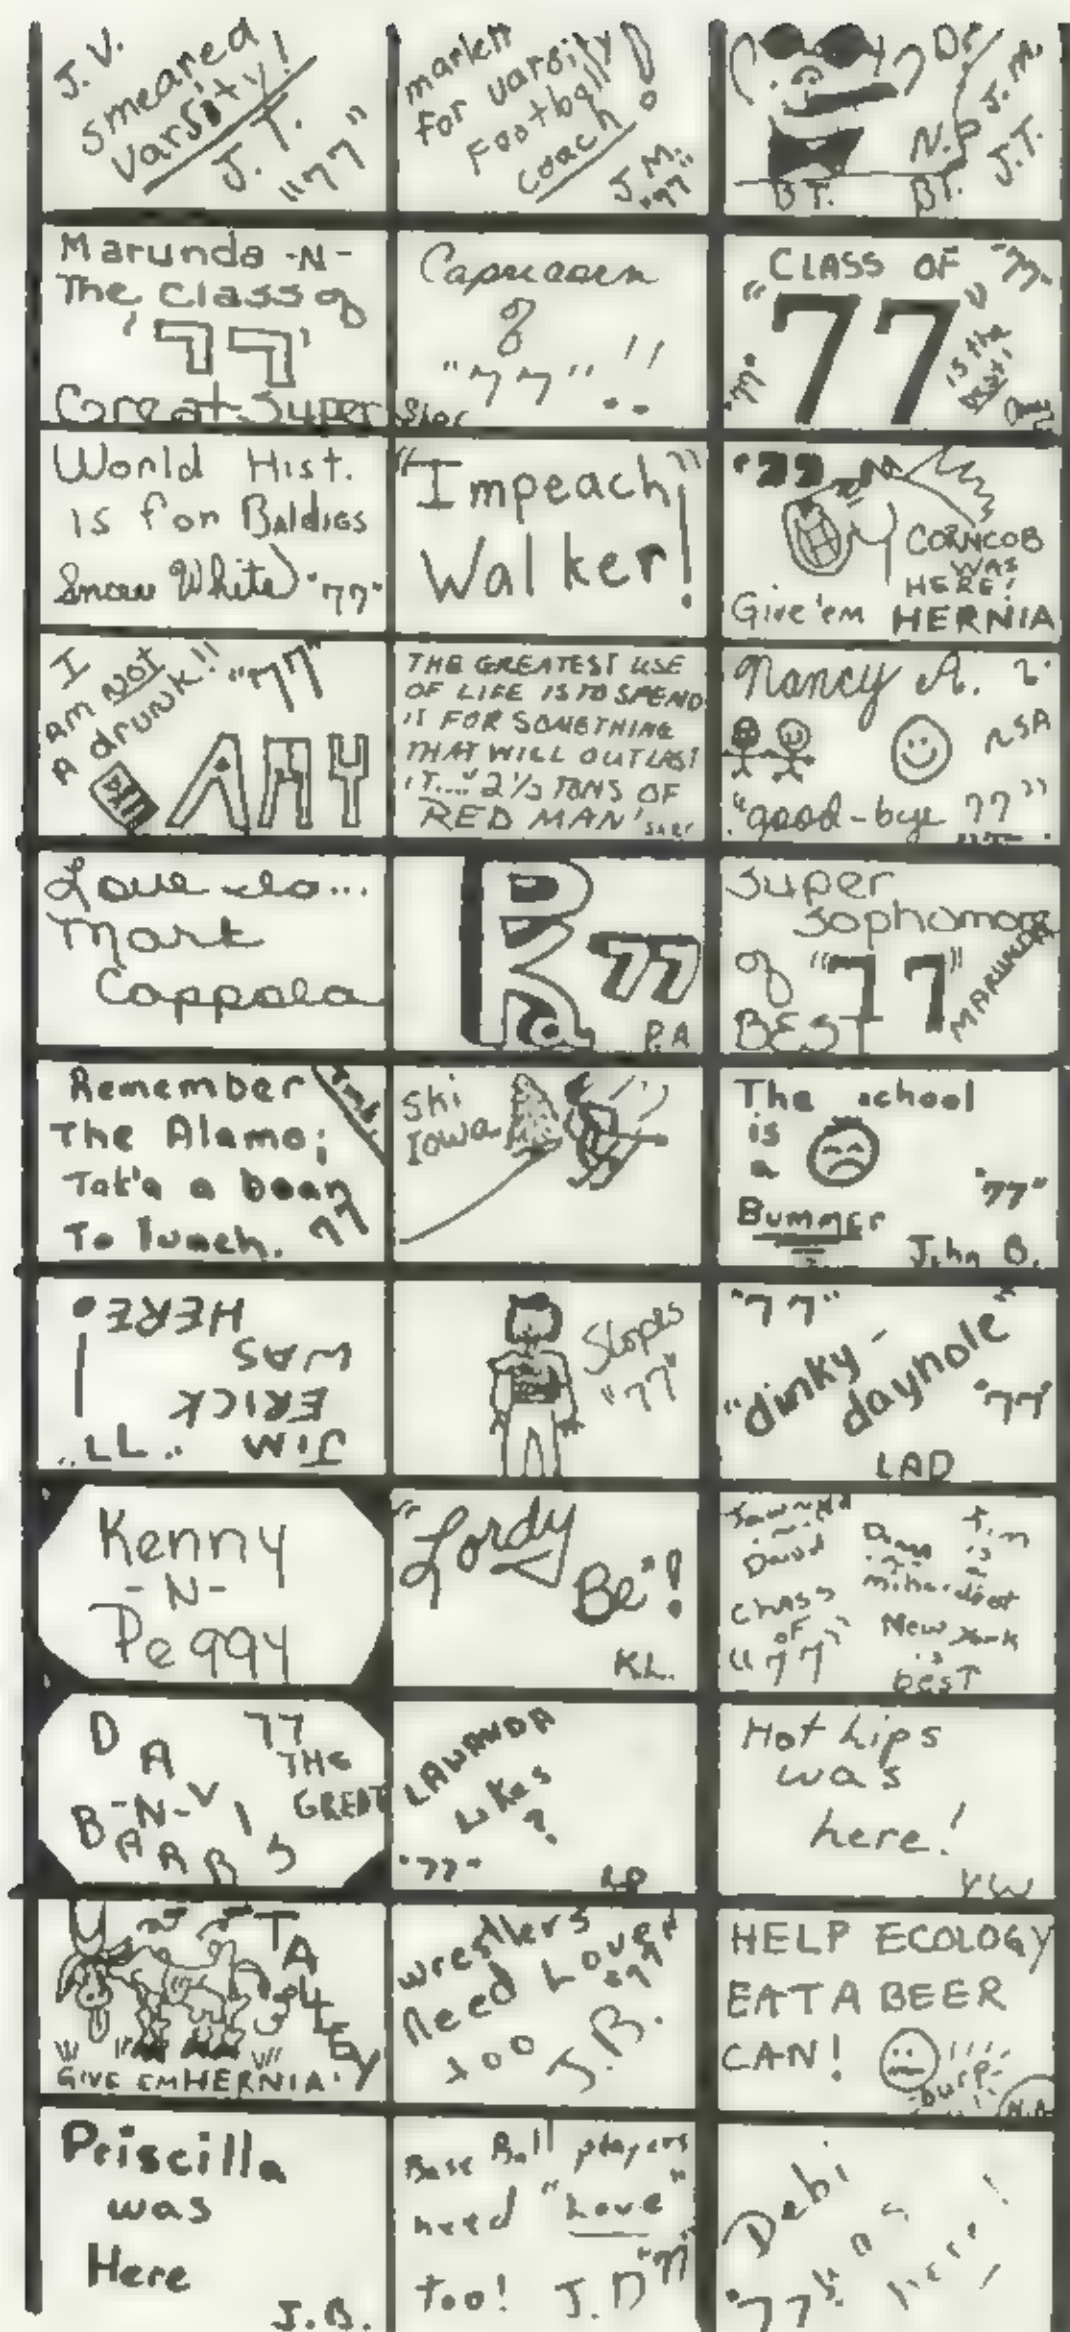 J.V.
smeared
varsity!
J.T.
"77"
markH
for varsity
Football
coach!
J.M.
"77"
Dr.
J.M.
N.P.
J.T.
B.T.
BT.
Marunda -N-
The class of
'77'
Great Super Star
Capricorn
of
"77"!!
CLASS OF "77"
"77"
"77"
is the
Best!
World Hist.
is for Baldies
Snow White "77"
"Impeach"
Walker!
"77"
CORNCOB
WAS
HERE!
Give 'em HERNIA
I
AM NOT
A drunk!! "77"
AMY
THE GREATEST USE
OF LIFE IS TO SPEND
IT FOR SOMETHING
THAT WILL OUTLAST
IT...." 2 1/2 TONS OF
RED MAN'
Nancy A.
RSA
"good-bye 77"
Love is...
Mark
Coppola
R 77
P.A
Super
Sophomore
of "77"
BEST
MARUNDA
Remember
The Alamo;
Tak'a a bean
To lunch. 77
Ski
Iowa
The school
is
a
Bummer
"77"
John B.
JIM
ERICK
WAS
HERE!
"77"
Slopes
"77"
"77"
"dinky-
dayhole"
"77"
LAD
Kenny
-N-
Peggy
"Lordy
Be"!
K.L.
David
Class
of
"77"
Tim
is
New York
is
best
DAVIS
-N-
BARB
77
THE
GREAT
LAWANDA
Likes
?
"77"
LP
Hot Lips
was
here!
YW
TA
GIVE EM HERNIA!
Wrestlers
Need Love
too
"77"
J.B.
HELP ECOLOGY
EAT A BEER
CAN!
burp
N.A.
Priscilla
was
Here
J.B.
Base Ball players
need "Love"
too! J.D "77"
Debi
was
here!
"77"